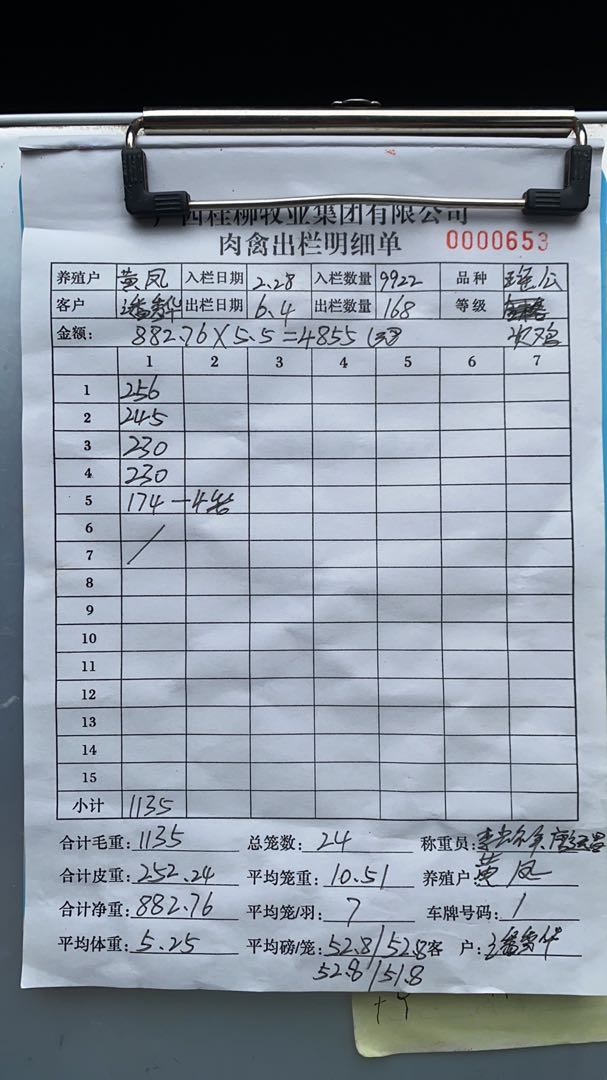 广西桂柳牧业集团有限公司
肉禽出栏明细单 0000653
养殖户 黄凤 入栏日期 2.28 入栏数量 9922 品种 瑶公
客户 出栏日期 6.4 出栏数量 168 等级
金额: 882.76×5.5=4855 次鸡
1 2 3 4 5 6 7
1 256
2 245
3 230
4 230
5 174 一4笼
6
7 /
8
9
10
11
12
13
14
15
小计 1135
合计毛重: 1135 总笼数: 24 称重员:
合计皮重: 252.24 平均笼重: 10.51 养殖户: 黄凤
合计净重: 882.76 平均笼/羽: 7 车牌号码: 1
平均体重: 5.25 平均磅/笼: 52.8/52.8 客 户:
52.8/51.8